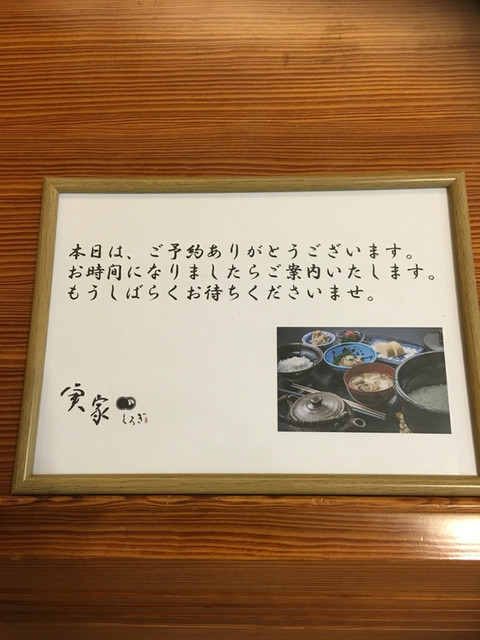 本日は、ご予約ありがとうございます。
お時間になりましたらご案内いたします。
もうしばらくお待ちくださいませ。
実家
くろぎ